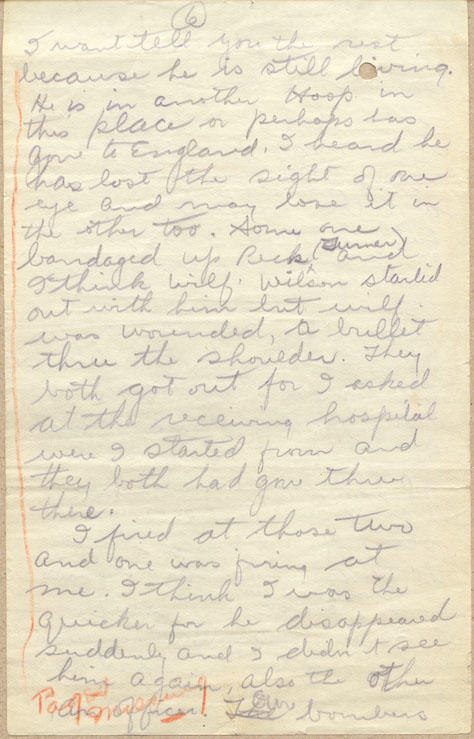 6
I want tell you the rest
because he is still living.
He is in another Hosp in
this place or perhaps has
gone to England. I heard he
has lost the sight of one
eye and may lose it in
the other too. Some one
bandaged up Peck (Turner) and
I think Wilf. Wilson started
out with him but Wilf.
was wounded, a bullet
thru the shoulder. They
both got out for I asked
at the receiving hospital
were I started from and
they both had gone thru
there.
I fired at those two
and one was firing at
me. I think I was the
quicker for he disappeared
suddenly and I didn't see
him again, also the other
an officer. Our bombers
Page missing